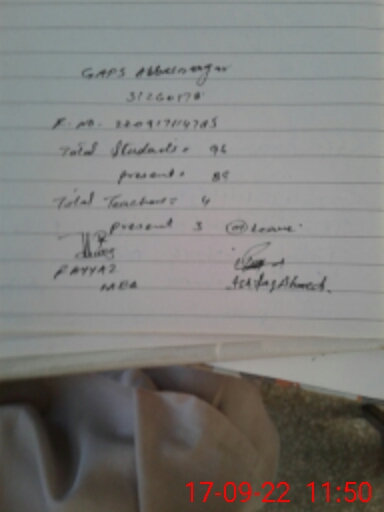 GAPS Abbasnagar
31260178
Total Students = 96
present = 89
Total Teachers = 4
present 3 Leave
FAYYAZ
MEA
Ashfaq Ahmed
17-09-22 11:50